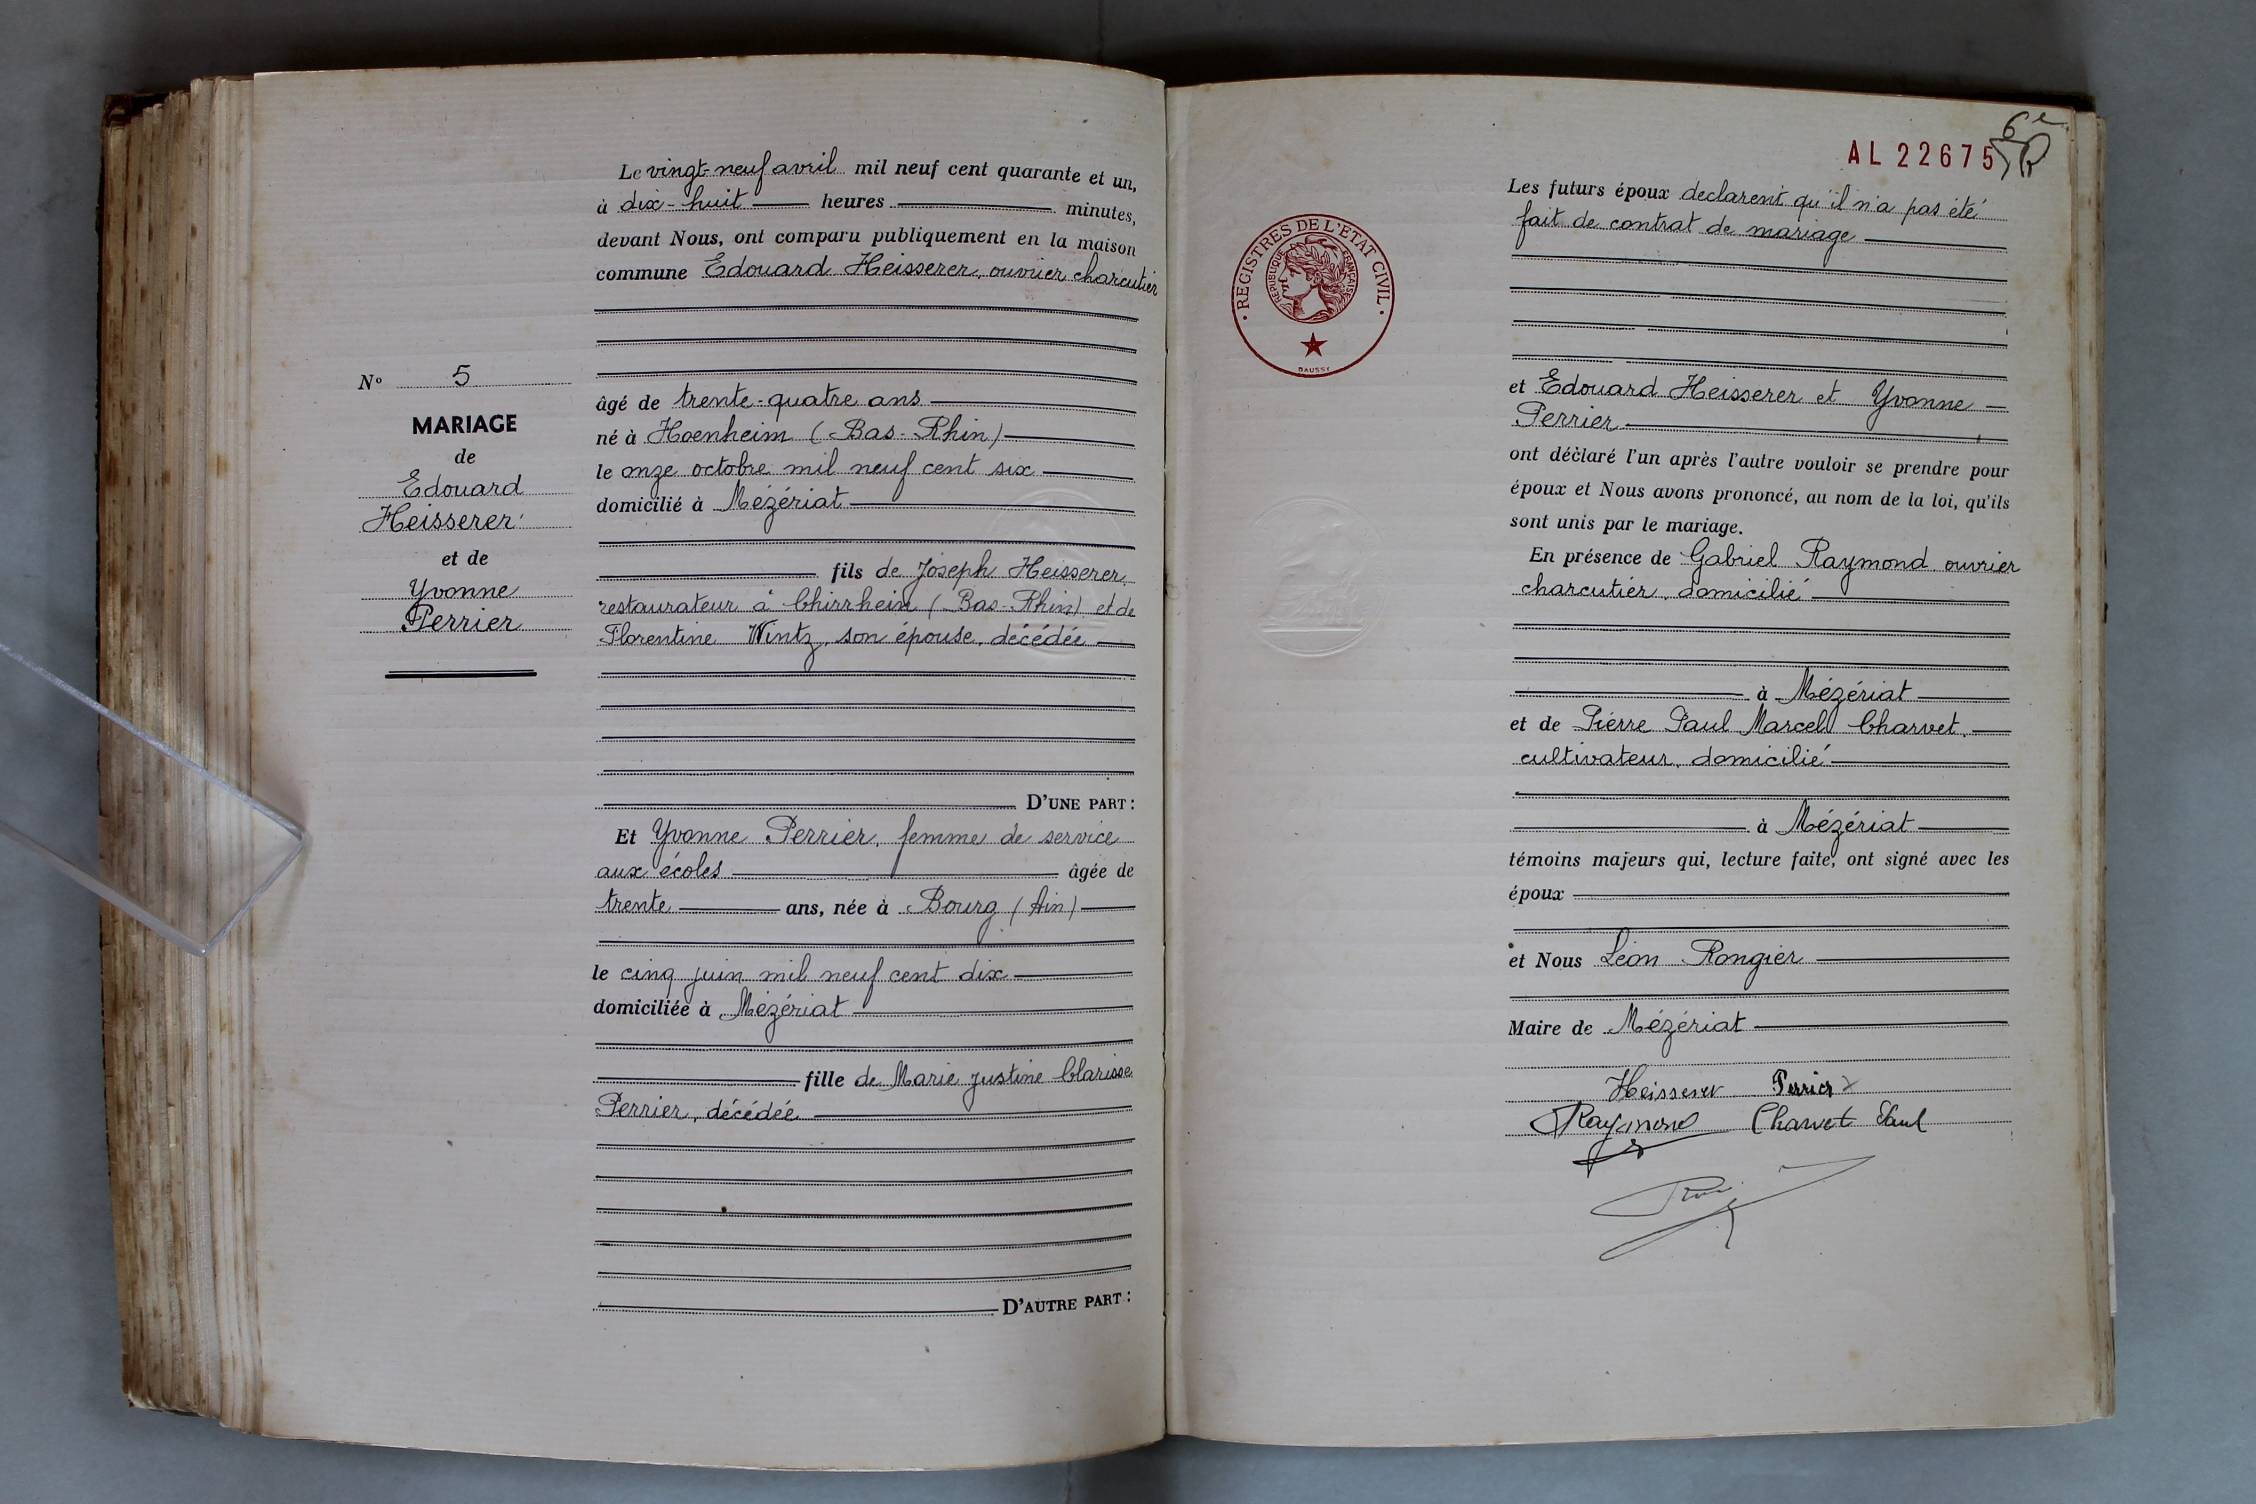 N° 5
MARIAGE
de
Edouard
Heisserer
et de
Yvonne
Perrier
Le vingt-neuf avril mil neuf cent quarante et un,
à dix-huit heures minutes,
devant Nous, ont comparu publiquement en la maison
commune Edouard Heisserer, ouvrier charcutier
âgé de trente-quatre ans
né à Hoenheim (Bas-Rhin)
le onze octobre mil neuf cent six
domicilié à Mézériat
fils de Joseph Heisserer
restaurateur à Chirrhein (Bas-Rhin) et de
Florentine Wintz, son épouse, décédée
D'UNE PART :
Et Yvonne Perrier, femme de service
aux écoles âgée de
trente ans, née à Bourg (Ain)
le cinq juin mil neuf cent dix
domiciliée à Mézériat
fille de Marie Justine Clarisse
Perrier, décédée
D'AUTRE PART :
6e
AL 22675
REGISTRES DE L'ETAT CIVIL
REPUBLIQUE FRANÇAISE
DAUSSY
Les futurs époux declarent qu'il n'a pas été
fait de contrat de mariage
et Edouard Heisserer et Yvonne
Perrier
ont déclaré l'un après l'autre vouloir se prendre pour
époux et Nous avons prononcé, au nom de la loi, qu'ils
sont unis par le mariage.
En présence de Gabriel Raymond ouvrier
charcutier, domicilié
à Mézériat
et de Pierre Paul Marcel Charvet,
cultivateur, domicilié
à Mézériat
témoins majeurs qui, lecture faite, ont signé avec les
époux
et Nous Léon Rongier
Maire de Mézériat
Heisserer Perrier
Raymond Charvet Paul